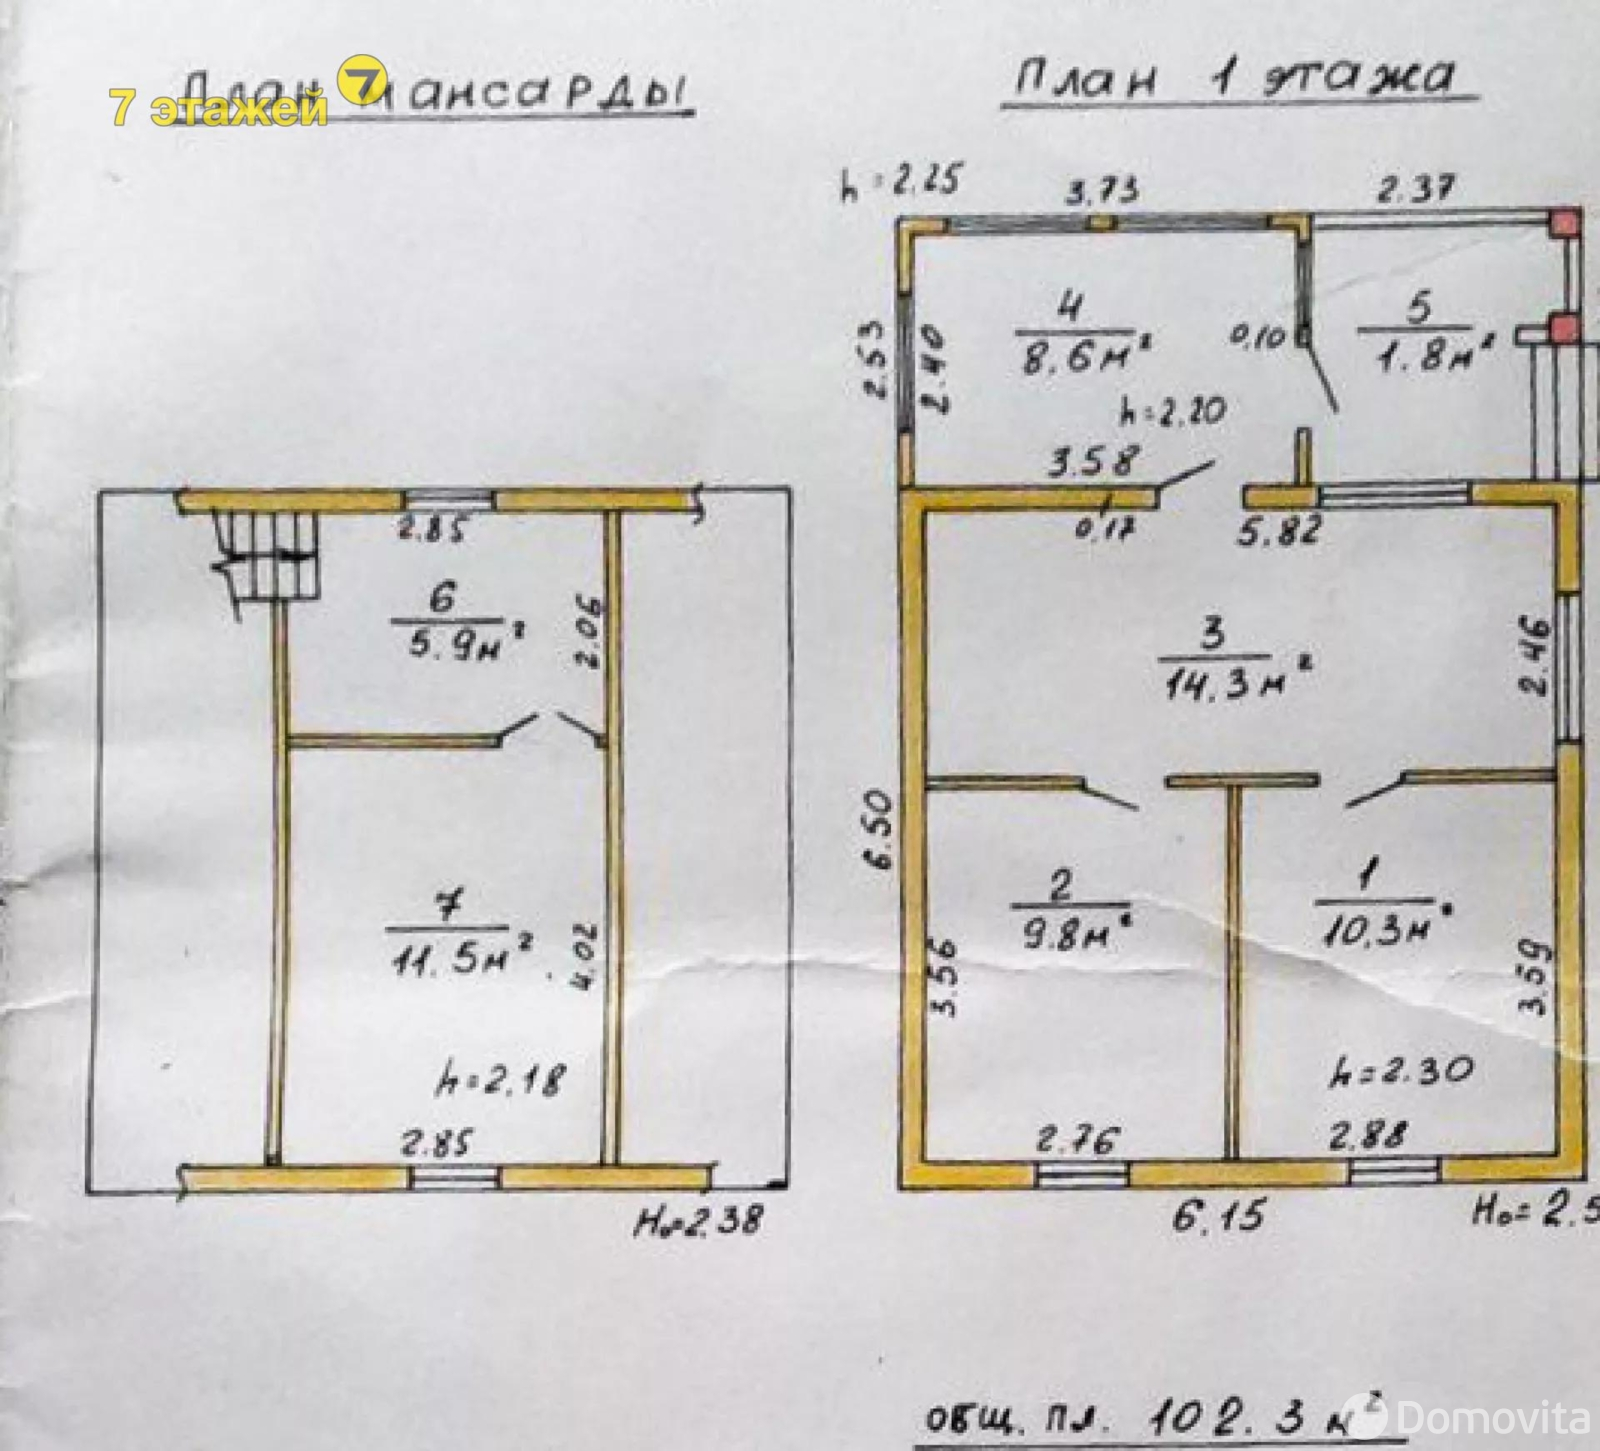 План мансарды
7 этажей
7
План 1 этажа
h=2.25
3.73
2.37
2.53
2.40
4
8.6 м²
0,10
5
1.8 м²
h=2.20
3.58
0,17
5.82
2.85
6
5.9 м²
2.06
3
14.3 м²
2.46
6.50
7
11.5 м²
4.02
2
9.8 м²
1
10.3 м²
3.56
3.59
h=2.18
h=2.30
2.85
2.76
2.88
H₀=2.38
6.15
H₀=2.5
общ. пл. 102.3 м²
Domovita